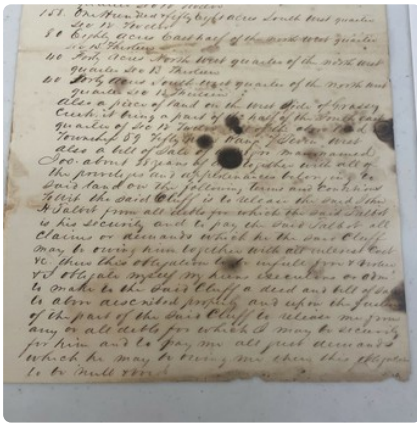 158. One Hundred & fifty eight acres South West quarter
Sec 12 Twelve
80 Eighty Acres East half of the north West quarter
Sec 13 Thirteen
40 Forty Acres North West quarter of the north West
quarter Sec 13 Thirteen
40 Forty Acres South West quarter of the north West
quarter Sec 13 Thirteen
Also a piece of land on the West side of Grassy
Creek it being a part of the half of the South East
quarter of Sec 12 Twelve of the above
Township 59 Fifty Range 7 Seven West
also a bill of Sale for man named
Joe about 35 years of together with all of
the privileges and appurtenances belonging to
said land on the following terms and conditions
to wit the said Cluff is to release the said John
H Talbot from all debts for which the said Talbot
is his security and to pay the said Talbot all
claims or demands which he the said Cluff
may be owing him together with all interest Cost
&c. then this obligation to be
& I obligate myself my heirs executors or adm
to make to the Said Cluff a deed and bill of Sale
to above described property and upon the
of the part of the Said Cluff to release me from
any or all debts for which I may be security
for him and to pay me all just demands
which he may be owing me then this obligation
to be null & void